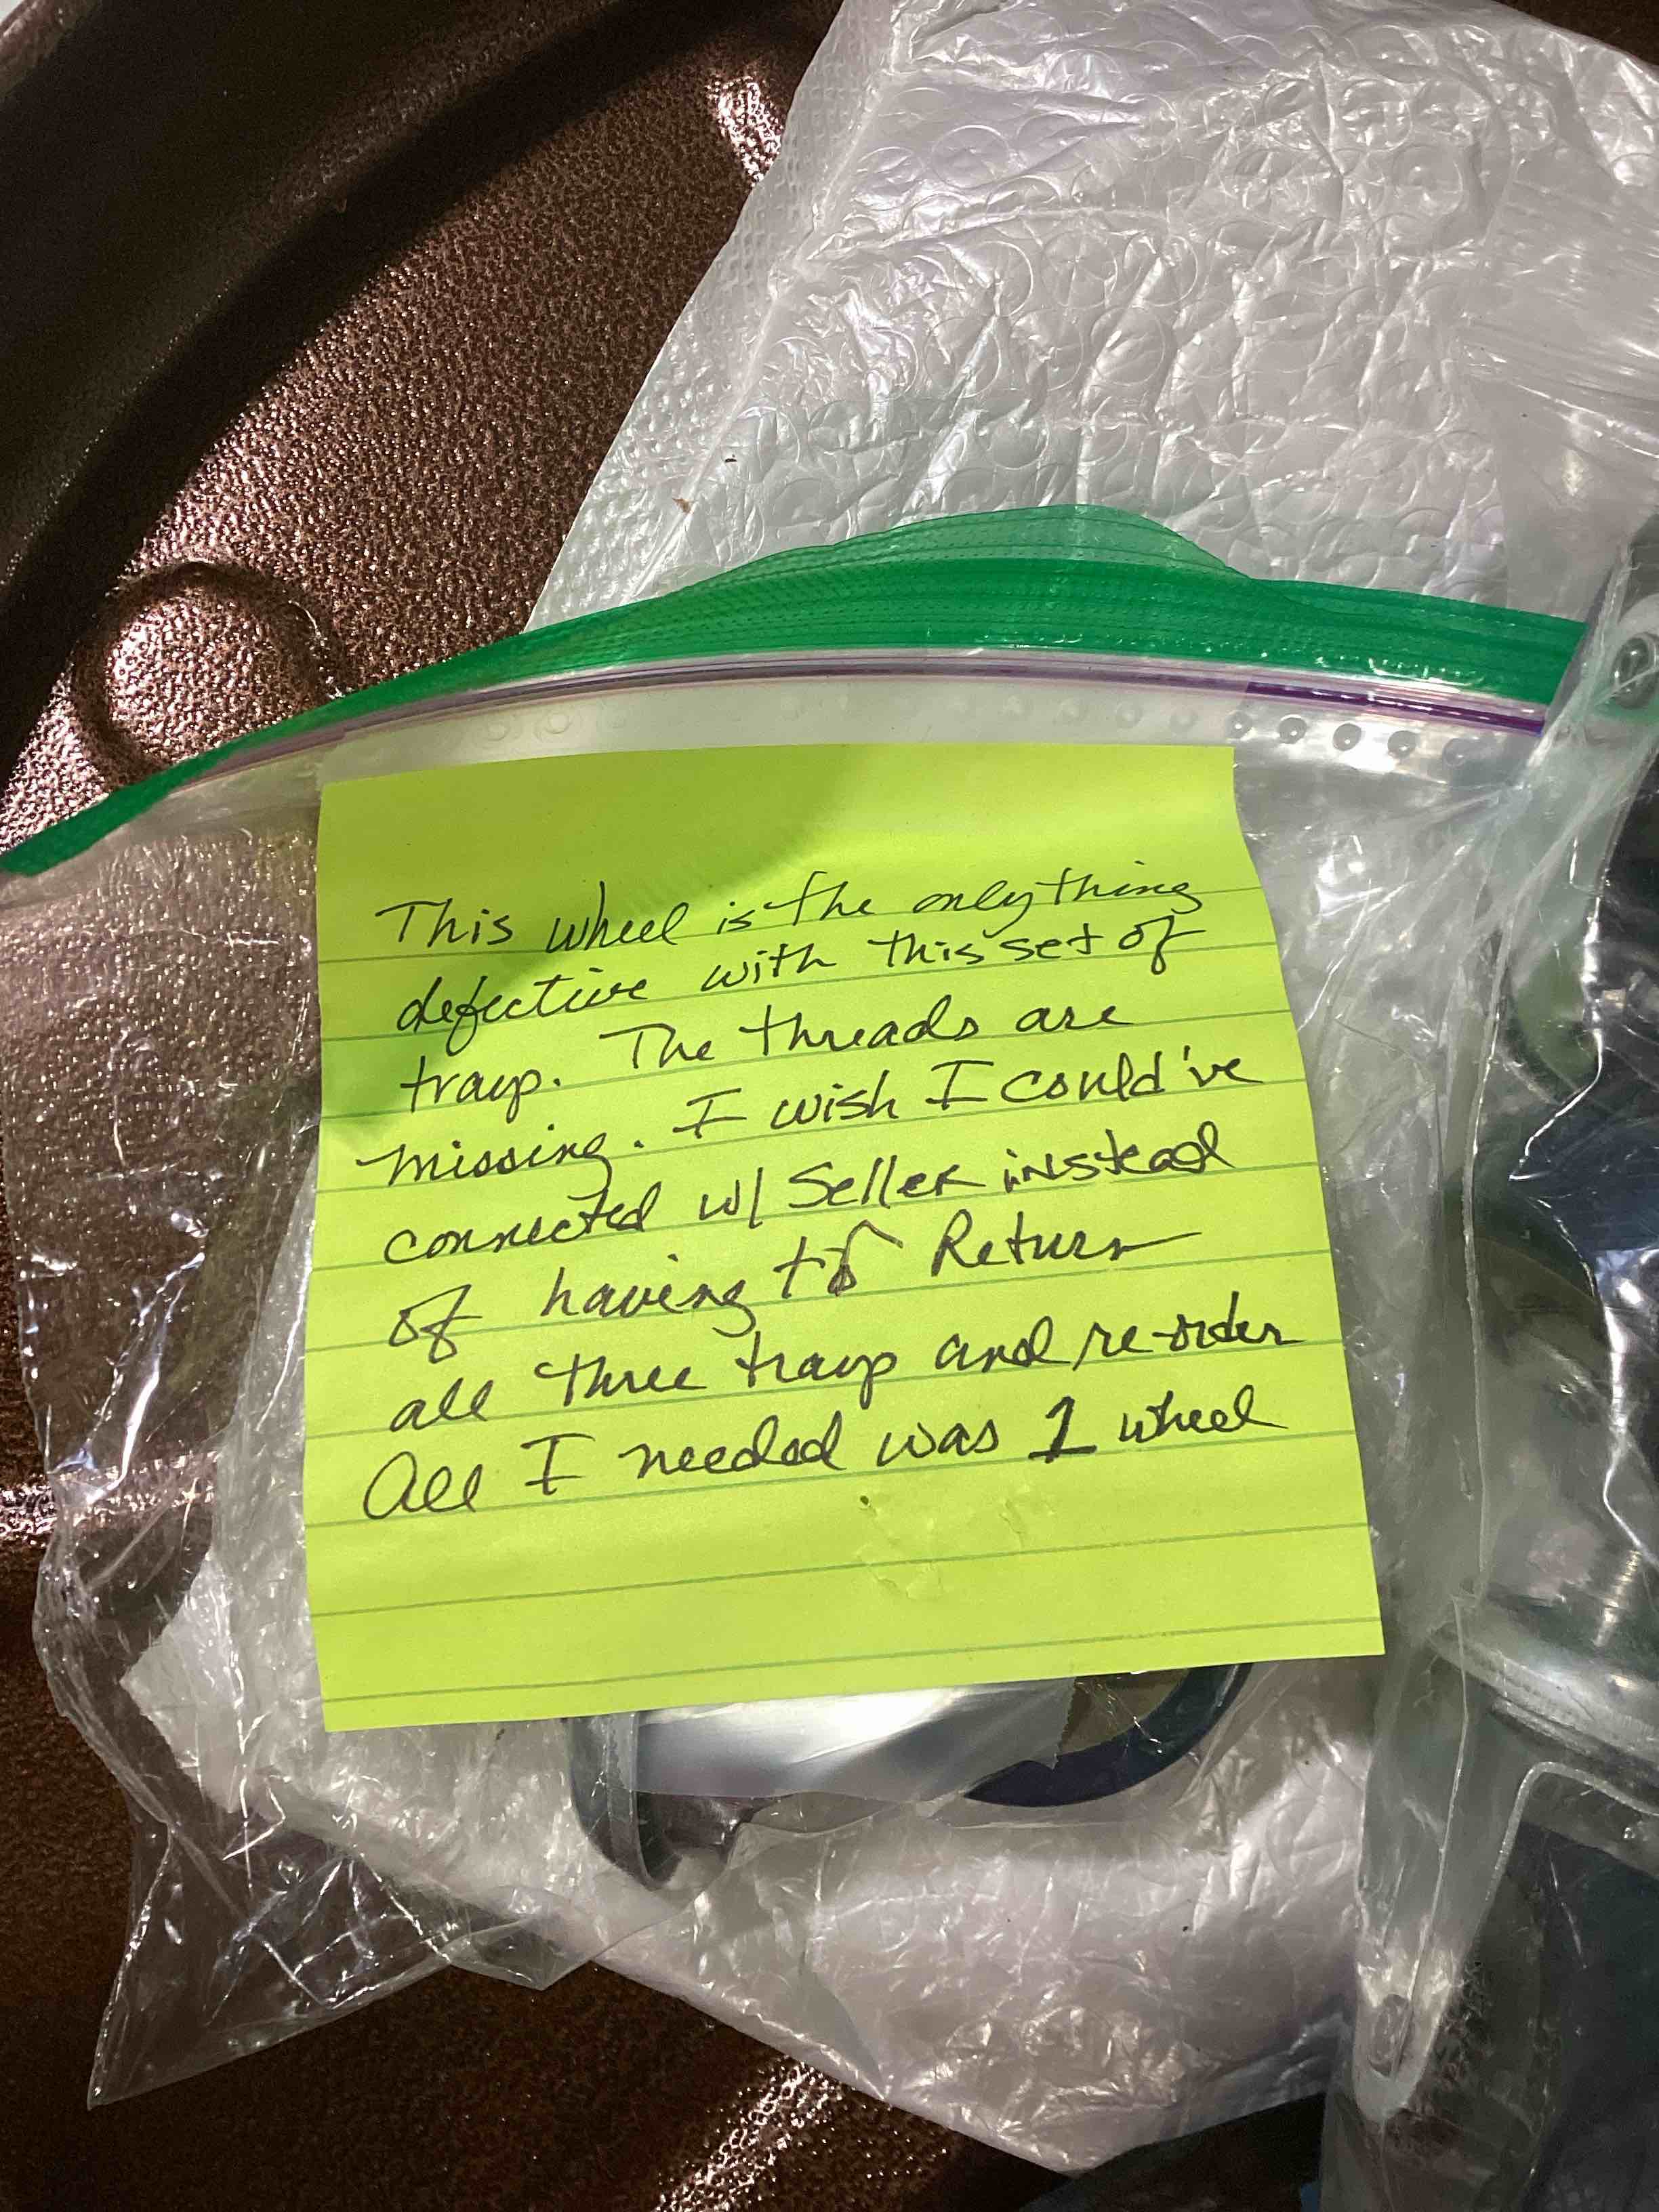 This wheel is the only thing
defective with this set of
trays. The threads are
missing. I wish I could've
connected w/ Seller instead
of having to Return
all three trays and re-order
All I needed was 1 wheel